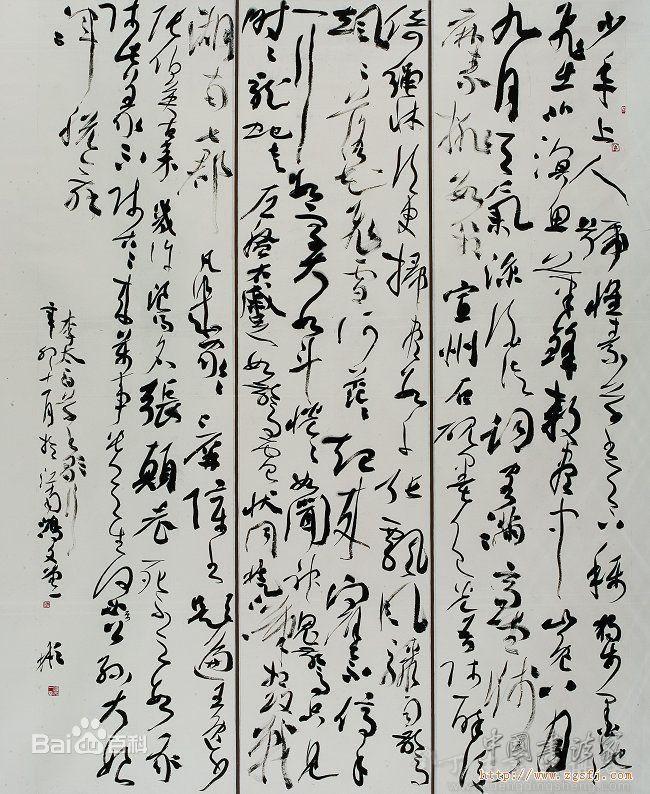 少年上人號懷素草書天下稱獨步墨池
飛出北溟魚筆鋒殺盡中山兔八月
九月天氣涼酒徒詞客滿高堂牋
麻素絹排數箱宣州石硯墨色光吾師醉後
倚繩床須臾掃盡數千張飄風驟雨驚
颯々落花飛雪何茫々起來向壁不停手
一行數字大如斗怳々如聞神鬼驚只見
時々龍蛇走左盤右蹙如驚電狀同楚漢相攻戰
湖南七郡凡幾家々々屏障書題遍王逸少
張伯英古來幾許浪得名張顛老死不足數我
師此義不師古々來萬事貴天生何必要公孫大娘
渾脫舞
李太白草書歌行
辛卯十一月於江浦
Bai百科
中國書法家
http://www.zgsfj.com